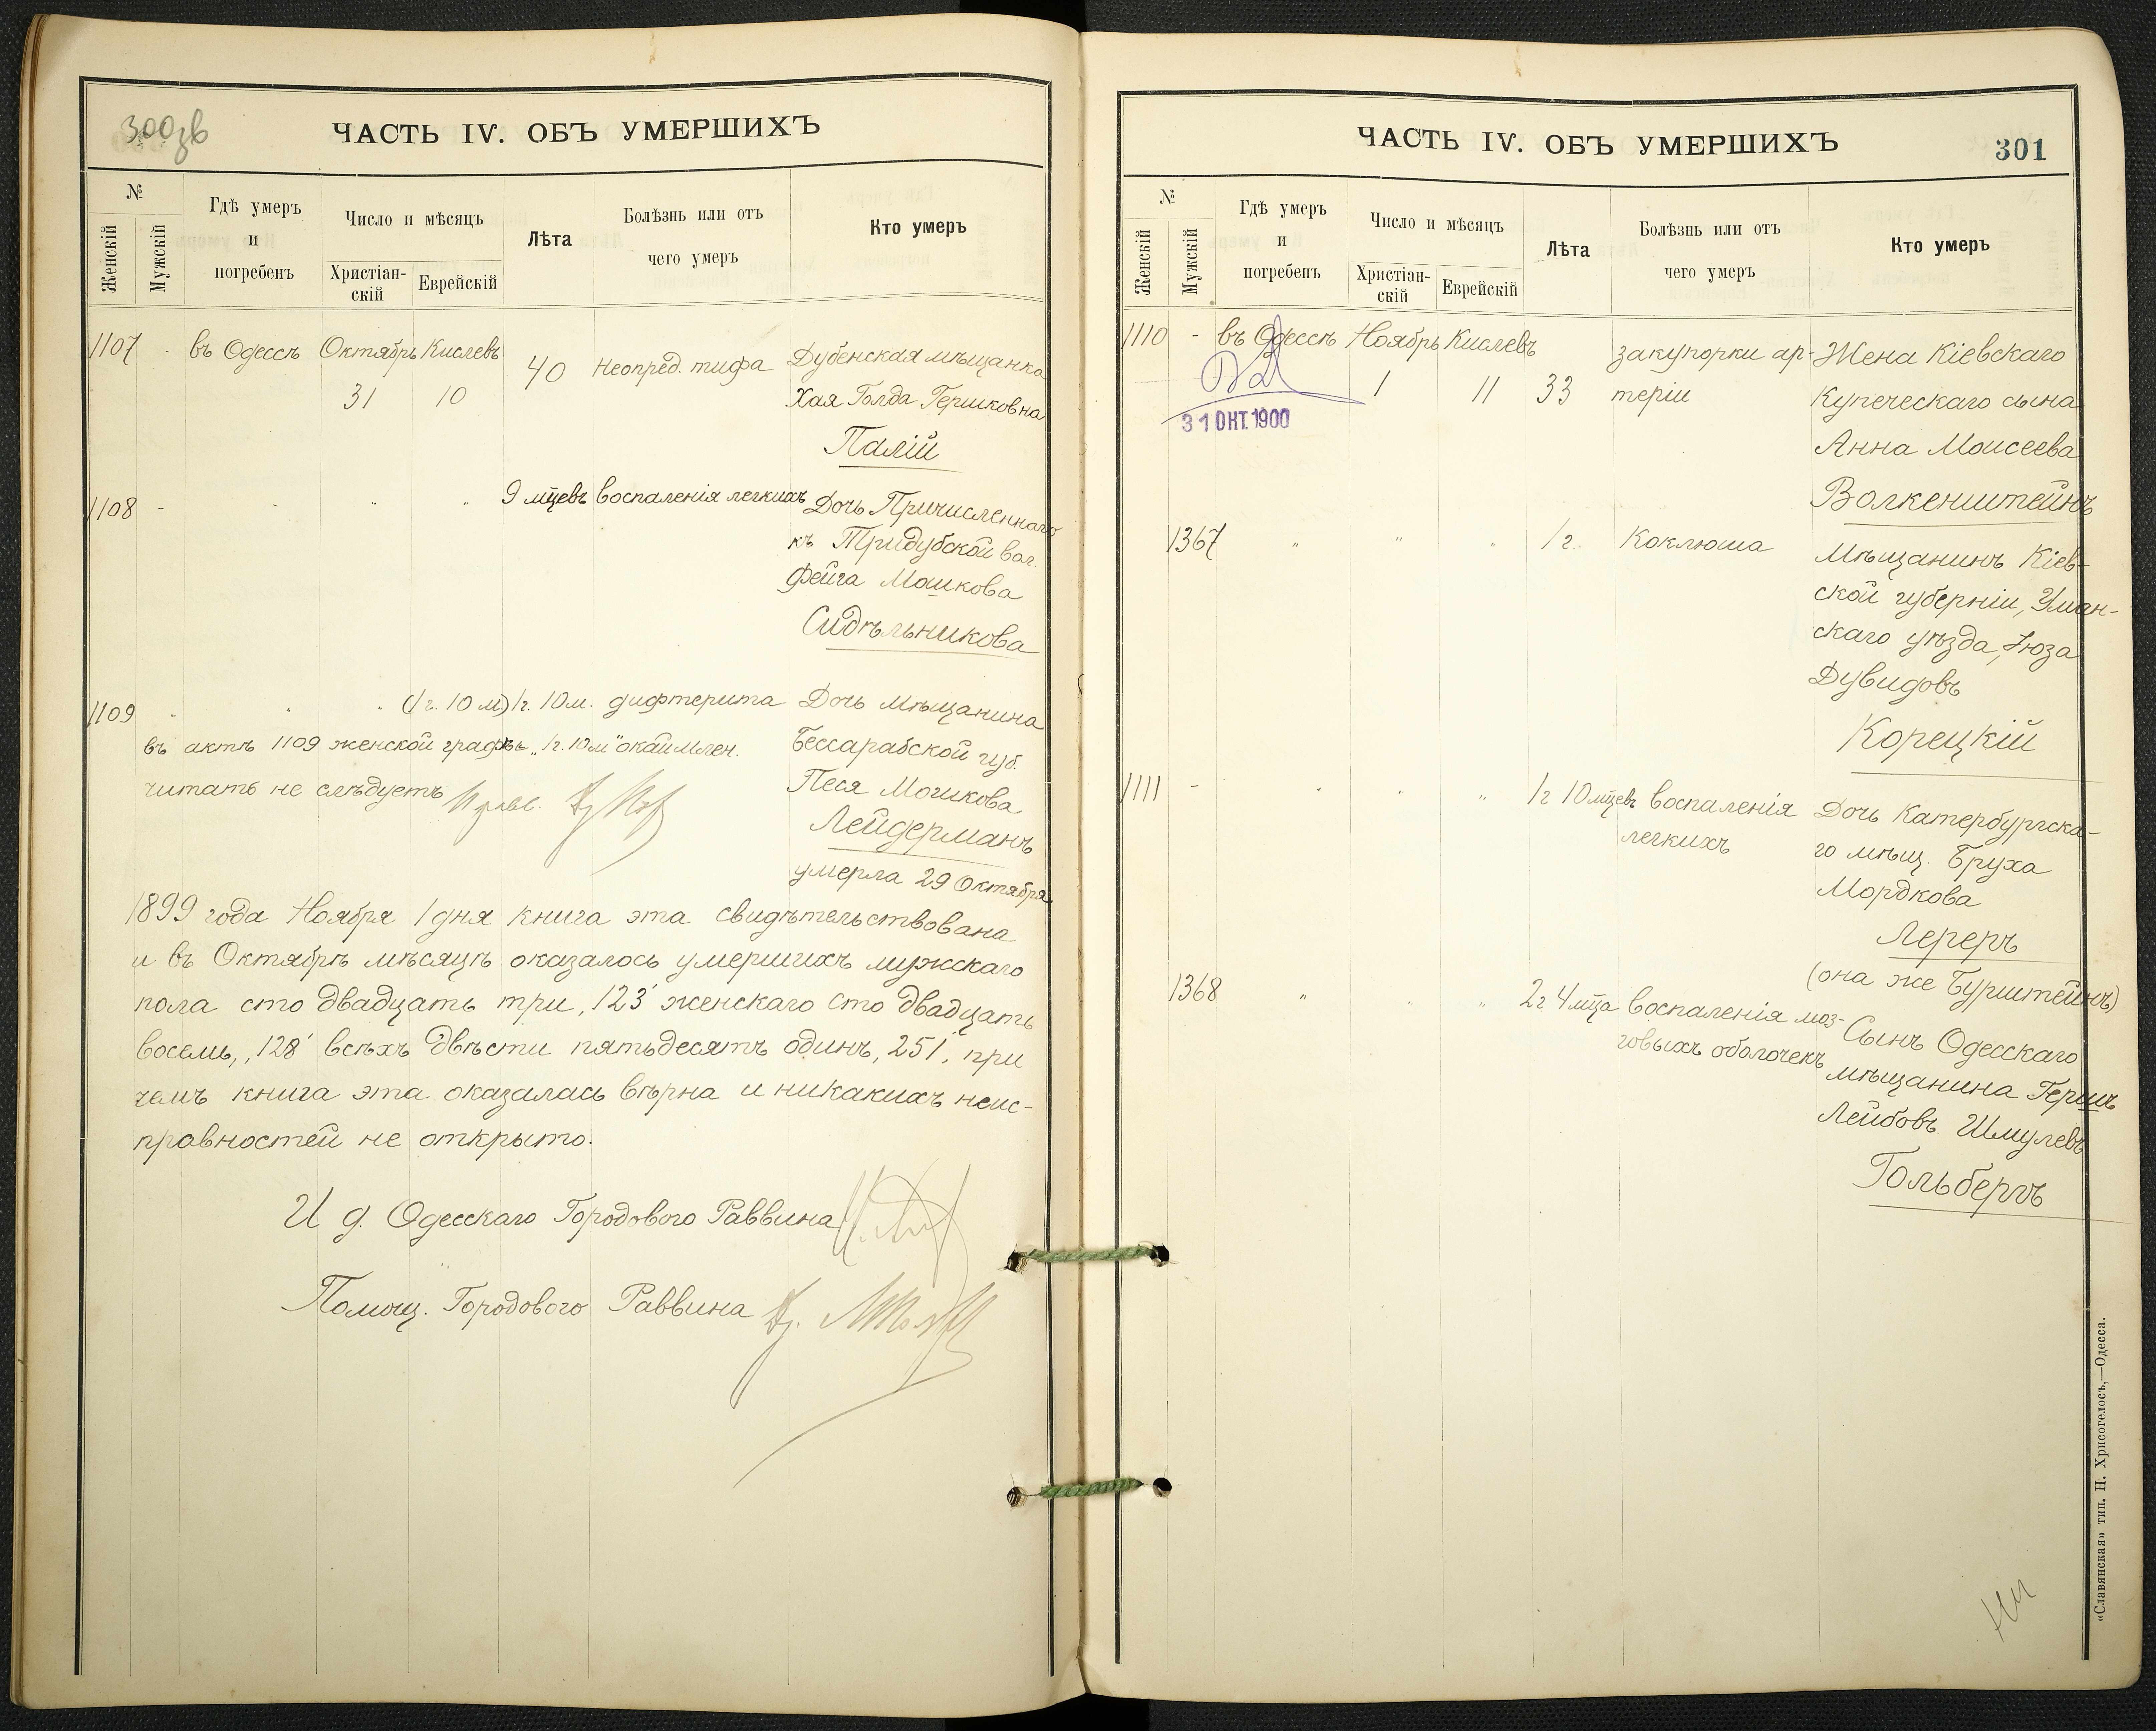 300зв
ЧАСТЬ IV. ОБЪ УМЕРШИХЪ
№
Женскій
Мужскій
Гдѣ умеръ
и
погребенъ
Число и мѣсяцъ
Христіан-
скій
Еврейскій
Лѣта
Болѣзнь или отъ
чего умеръ
Кто умеръ
1107 - въ Одессѣ Октябрь Кислевъ 40 Неопред. тифа Дубенская мѣщанка
31 10 Хая Голда Гершковна
Палій
1108 - - " " 9 мцевъ воспаленія легкихъ Дочь Причисленнаго
къ Тридубской вол.
Фейга Мошкова
Сидѣльникова
1109 - " " (1 г. 10 м) 1 г. 10 м. дифтерита Дочь мѣщанина
въ актѣ 1109 женской графѣ „1 г. 10 м" окаймлен. Бессарабской губ.
читать не слѣдуетъ Песя Мошкова
Лейдерманъ
умерла 29 Октября
1899 года Ноября 1 дня книга эта свидѣтельствована
и въ Октябрѣ мѣсяцѣ оказалось умершихъ мужскаго
пола сто двадцать три, 123 женскаго сто двадцать
восемь, 128 всѣхъ двѣсти пятьдесятъ одинъ, 251, при
чемъ книга эта оказалась вѣрна и никакихъ неис-
правностей не открыто.
И д. Одесскаго Городового Раввина
Помощ. Городового Раввина
ЧАСТЬ IV. ОБЪ УМЕРШИХЪ
301
№
Женскій
Мужскій
Гдѣ умеръ
и
погребенъ
Число и мѣсяцъ
Христіан-
скій
Еврейскій
Лѣта
Болѣзнь или отъ
чего умеръ
Кто умеръ
1110 - въ Одессѣ Ноябрь Кислевъ закупорки ар- Жена Кіевскаго
1 11 33 теріи Купеческаго сына
31 ОКТ. 1900
Анна Моисеева
Волкенштейнъ
1367 " " " 1 г. Коклюша Мѣщанинъ Кіев-
ской губерніи, Уман-
скаго уѣзда,
Дувидовъ
Корецкій
1111 - " " " 1 г 10 мцевъ воспаленія Дочь Катербургска-
легкихъ го мѣщ. Бруха
Мордкова
Лереръ
(она же Бурштейнъ)
1368 " " " 2 г 4 мца воспаленія моз- Сынъ Одесскаго
говыхъ оболочекъ мѣщанина Гершъ
Лейбовъ Шмулевъ
Гольбергъ
«Славянская» тип. Н. Хрисогелосъ,—Одесса.